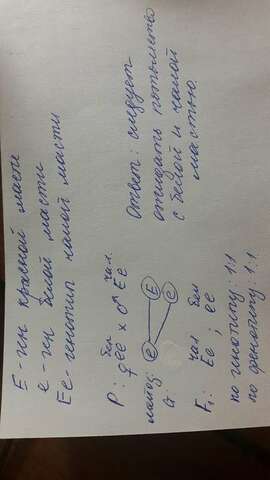 E - ген красной масти
e - ген белой масти
Ee - генотип чалой масти
бел чал
P: ♀ee × ♂Ee
мейоз:
e E e
G
чал бел
F₁: Ee ; ee
по генотипу: 1:1
по фенотипу: 1:1
Ответ: следует
ожидать потомство
с белой и чалой
мастью.